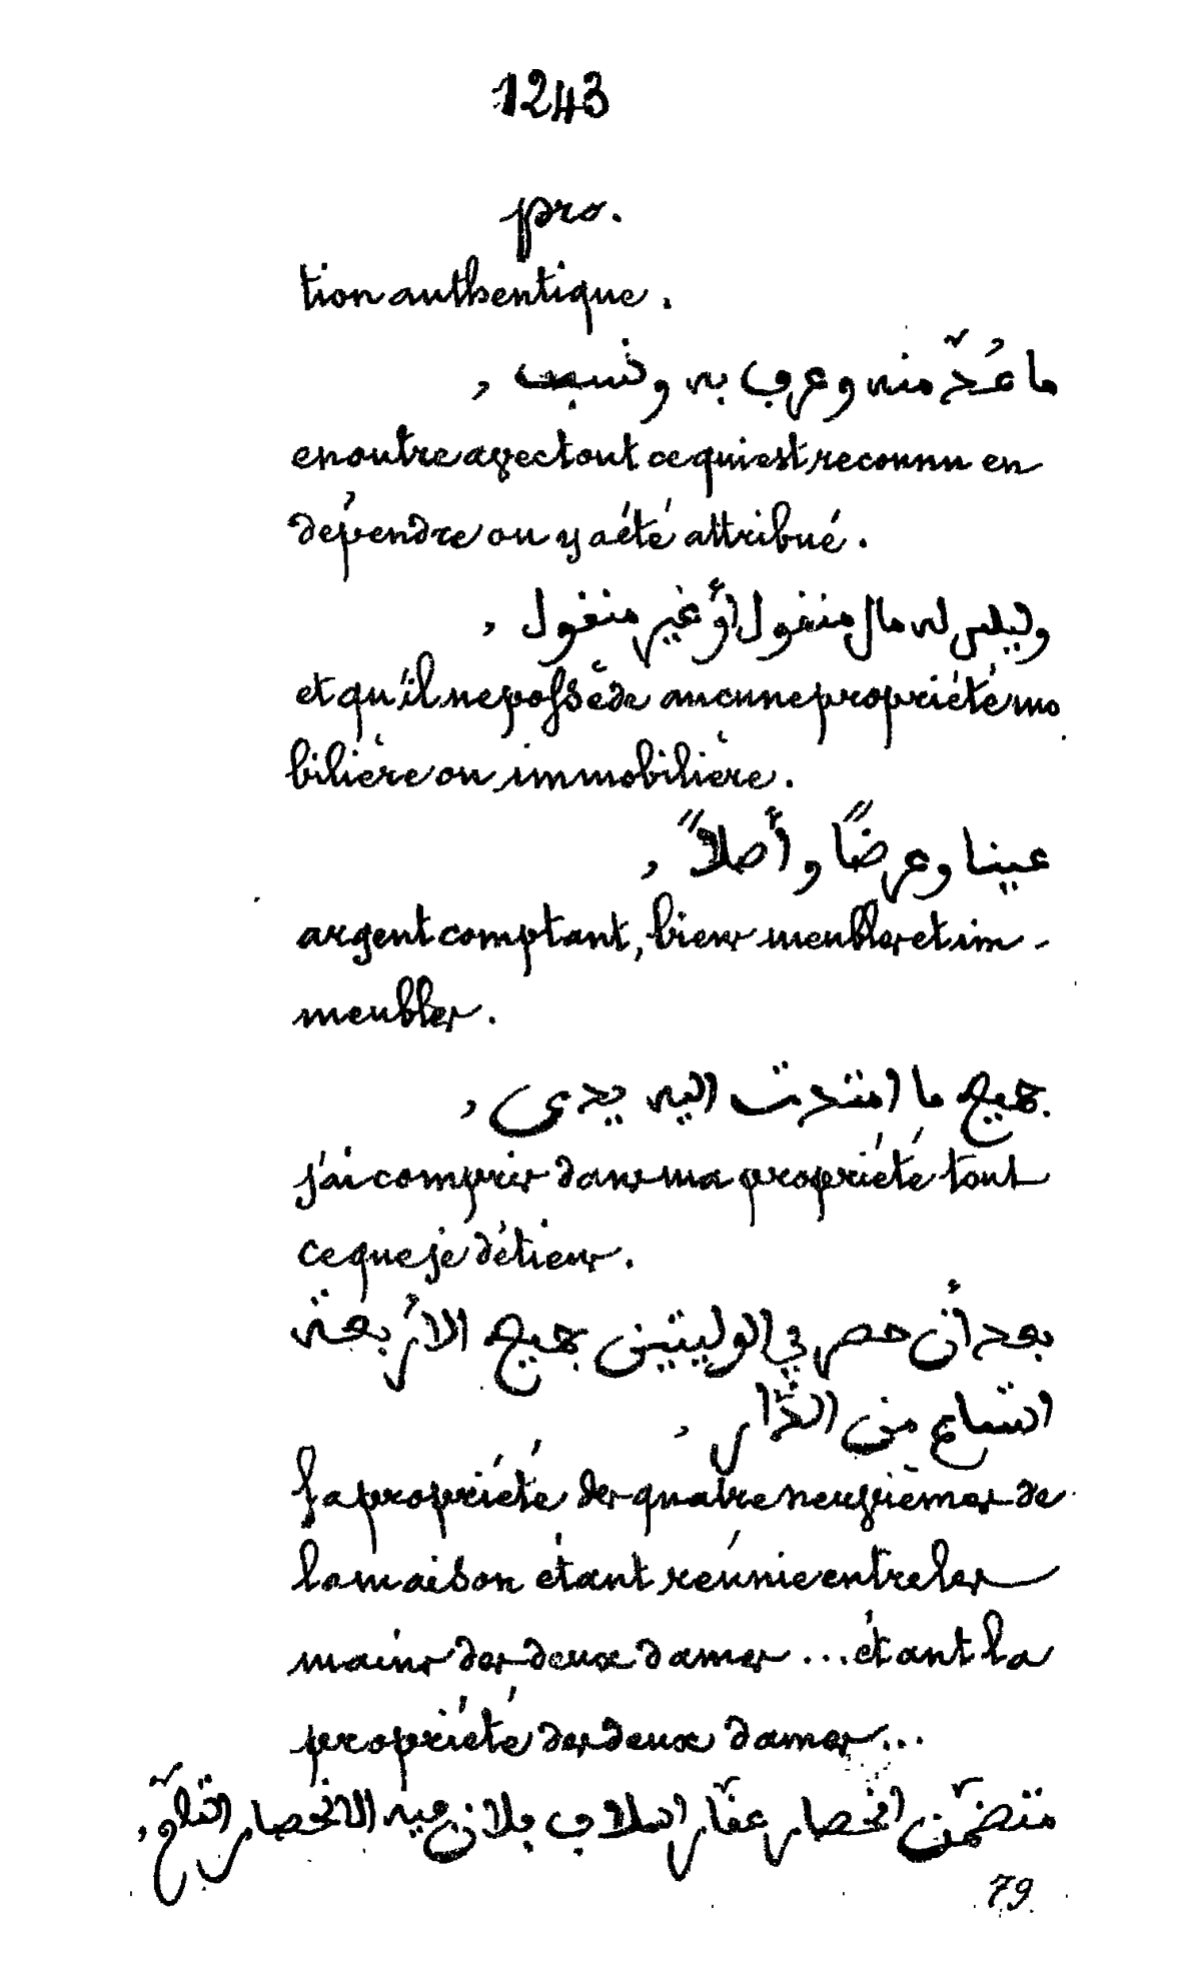 1243
pro.
tion authentique.
ما عُدّ منه وعرف به ونسب,
en outre avec tout ce qui est reconnu en
dépendre ou y a été attribué.
وليس له مال منقول أو غير منقول,
et qu'il ne possède aucune propriété mo
bilière ou immobilière.
عينا وعرضًا وأصلاً,
argent comptant, biens meubles et im-
meubles.
جميع ما امتدت اليه يدي,
j'ai compris dans ma propriété tout
ce que je détiens.
بعد أن حصر في الوليتين جميع الأربعة
اتساع من الدّار,
la propriété des quatre neuvièmes de
la maison étant réunie entre les
mains des deux dames ... étant la
propriété des deux dames...
متضمّن انحصار عقّار اسلاف فلان فيه الانحصار التامّ,
79